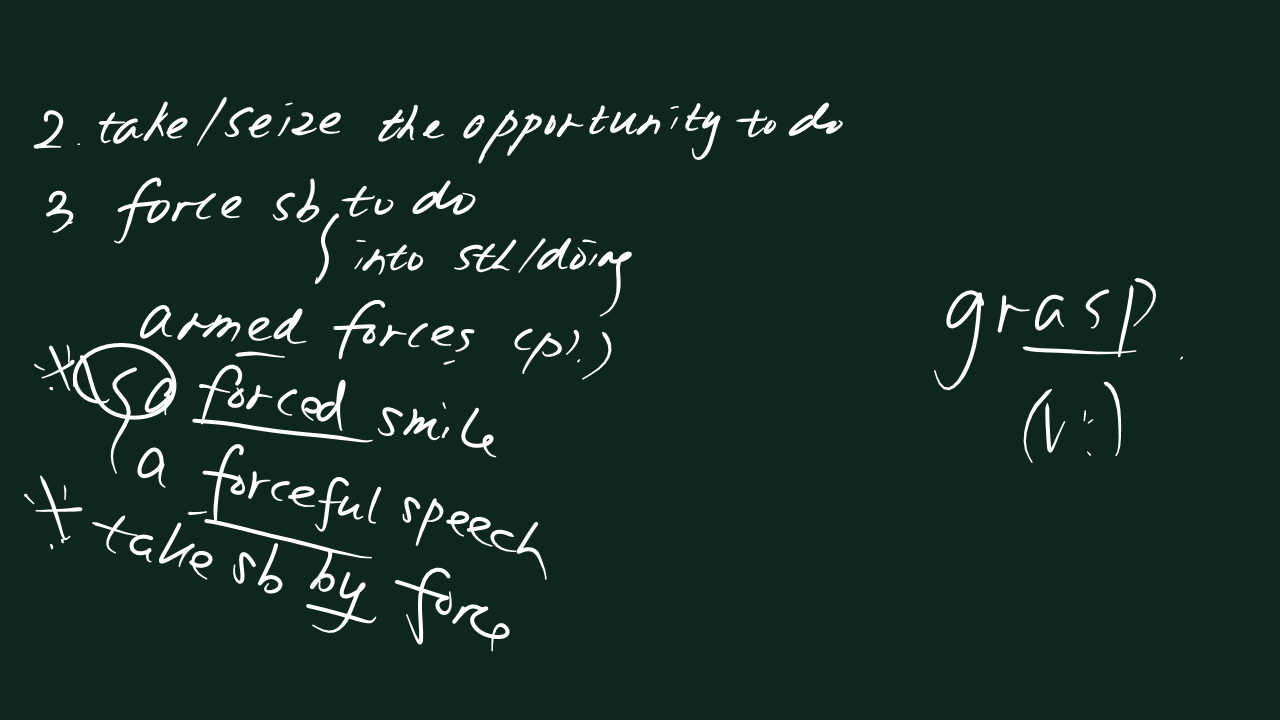 2. take/seize the opportunity to do
3 force sb to do
into sth/doing
armed forces (pl.)
※ a forced smile
a forceful speech
※ take sb by force
grasp
(v.)